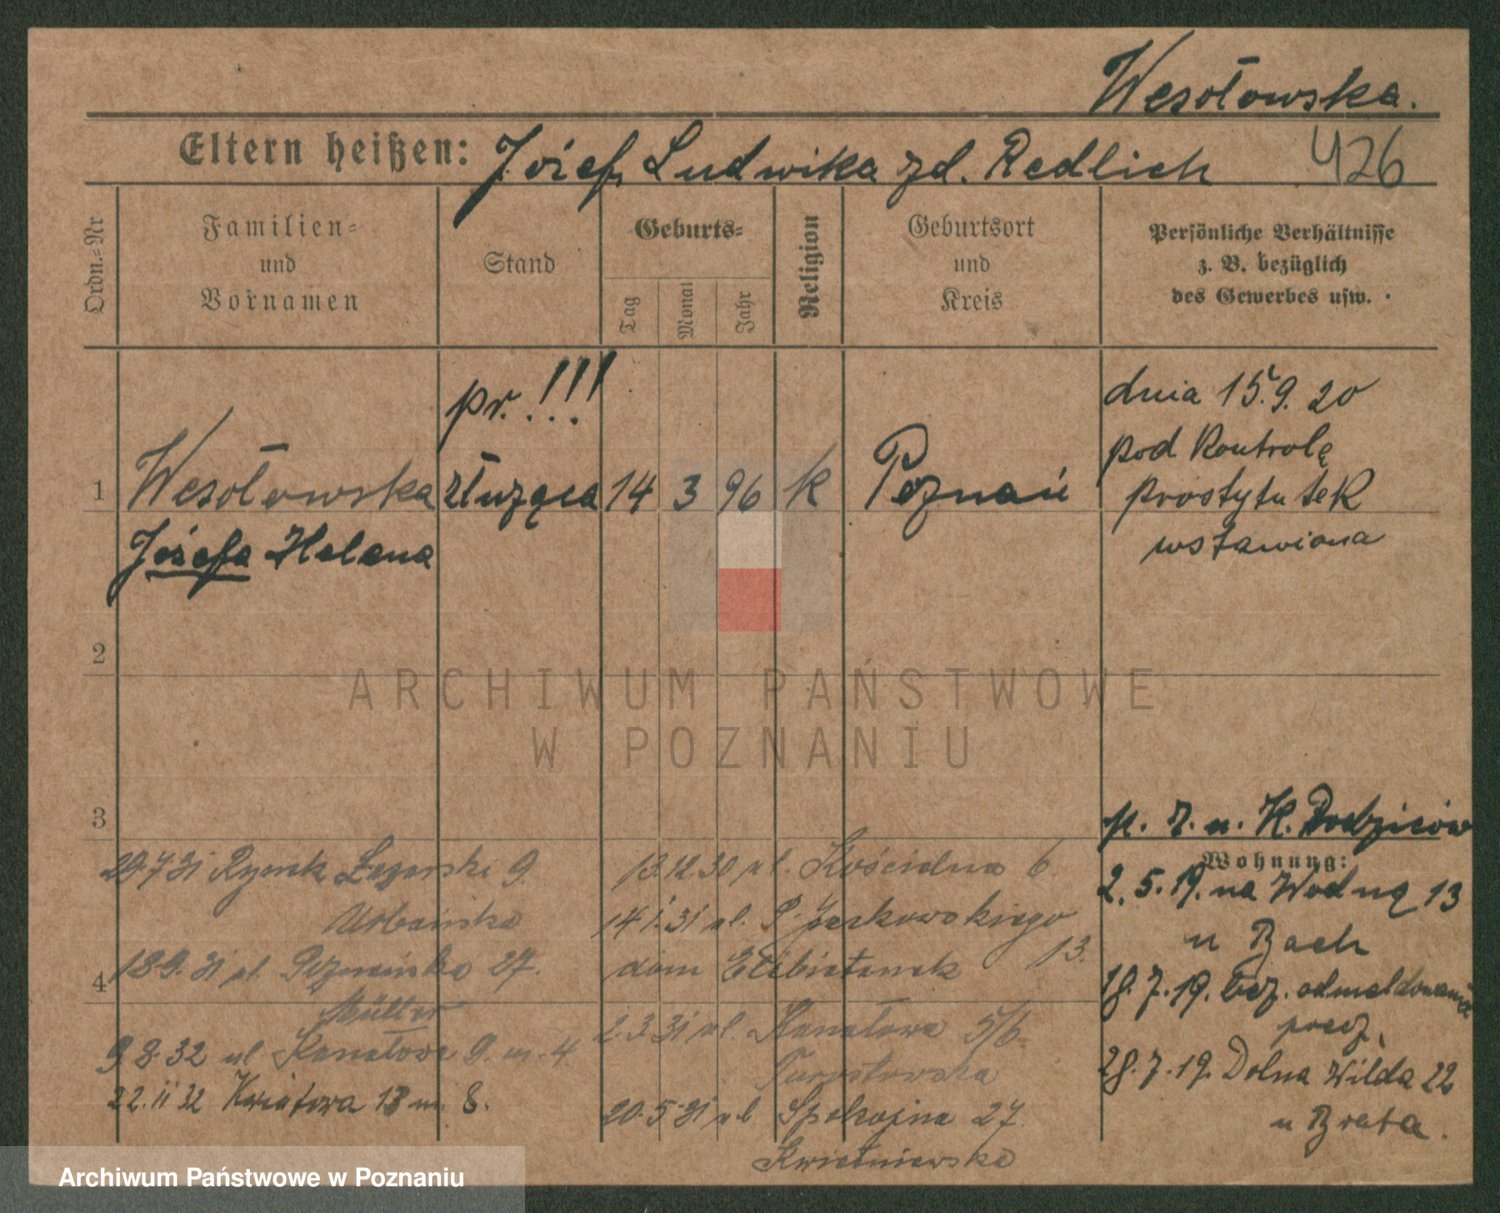 Wesołowska.
Eltern heißen: Józef, Ludwika zd. Redlich
426
Ordn.-Nr
Familien-
und
Vornamen
Stand
Geburts-
Tag
Monat
Jahr
Religion
Geburtsort
und
Kreis
Persönliche Verhältnisse
z. B. bezüglich
des Gewerbes usw.
pr. !!!
1 Wesołowska służąca 14 3 96 k Poznań
Józefa Helena
dnia 15.9.20
pod Kontrolę
prostytutek
wstawiona
2
ARCHIWUM PAŃSTWOWE
W POZNANIU
3
u. K. Rodziców
Wohnung:
2.5.19. na Wodną 13
u Bach
18.7.19. bez odmeldowania
28.7.19. Dolna Wilda 22
u Brata.
29 7 31 Rynek Łazarski 9.
Urbańska
4
18.9.31 ul. Poznańska 27.
Müller
9 8 32 ul Kanałowa 9. m. 4
22.11 32 Kwiatowa 13 m. 8.
13.12.30 ul. Kościelna 6
14.1.31 ul. 13.
dom Elżbietanek
2.3.31 ul. Kanałowa 5/6
20.5.31 ul Spokojna 27.
Kwietniewska
Archiwum Państwowe w Poznaniu